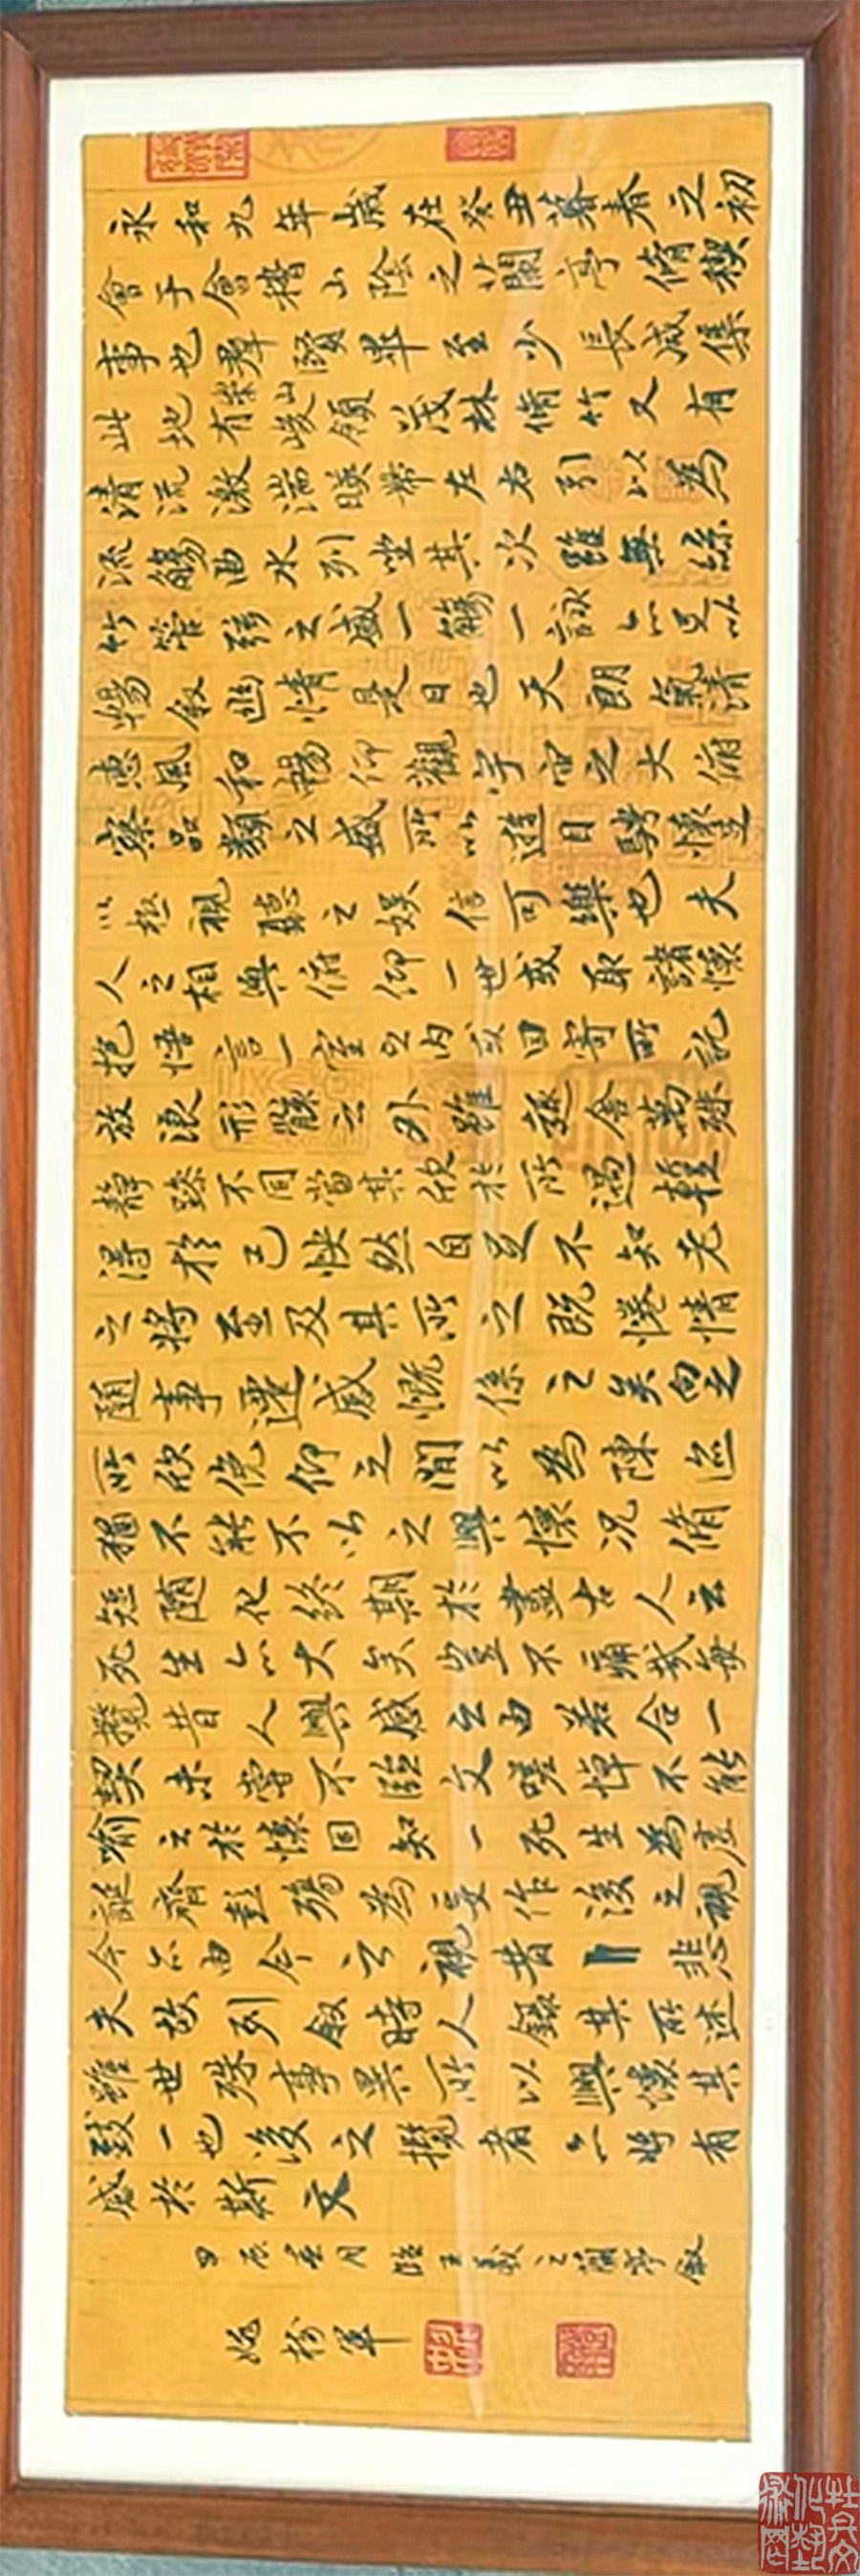 永和九年歲在癸丑暮春之初
會于會稽山陰之蘭亭脩稧
事也羣賢畢至少長咸集
此地有崇山峻領茂林脩竹又有
清流激湍暎帶左右引以為
流觴曲水列坐其次雖無絲
竹管弦之盛一觴一詠亦足以
暢叙幽情是日也天朗氣清
惠風和暢仰觀宇宙之大俯
察品類之盛所以遊目騁懷足
以極視聽之娛信可樂也夫
人之相與俯仰一世或取諸懷
抱悟言一室之內或因寄所託
放浪形骸之外雖趣舍萬殊
靜躁不同當其欣於所遇蹔
得於己怏然自足不知老
之將至及其所之既惓情
隨事遷感慨係之矣向之
所欣俛仰之閒以為陳迹
猶不能不以之興懷况脩
短隨化終期於盡古人云
死生亦大矣豈不痛哉每
攬昔人興感之由若合一
契未嘗不臨文嗟悼不能
喻之於懷固知一死生為虛
誕齊彭殤為妄作後之視
今亦由今之視昔悲
夫故列叙時人錄其所述
雖世殊事異所以興懷其
致一也後之攬者亦將有
感於斯文
甲辰春月臨王羲之蘭亭叙